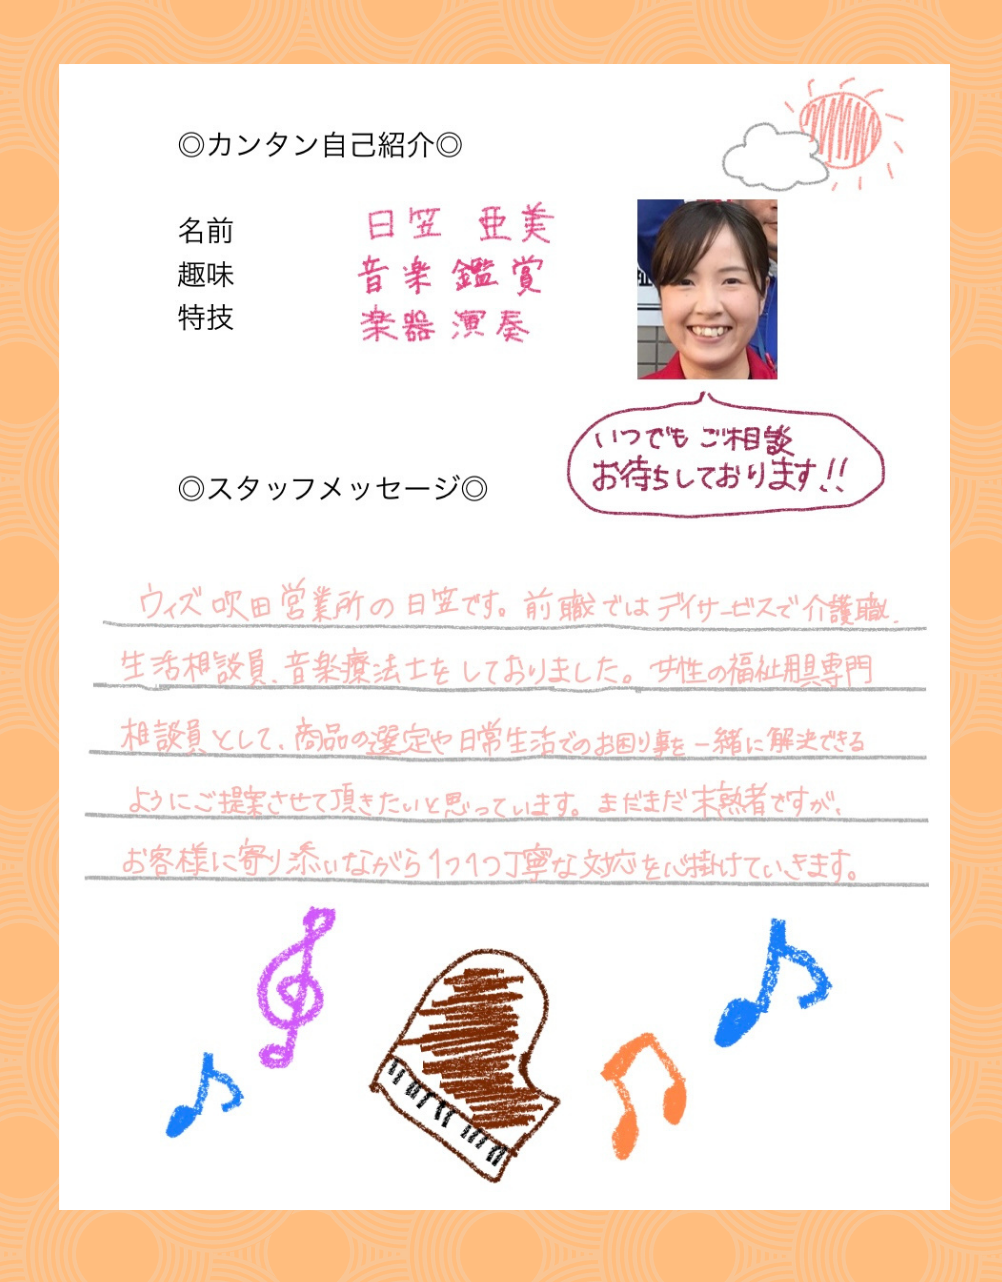 ◎カンタン自己紹介◎
名前 日笠 亜美
趣味 音楽鑑賞
特技 楽器演奏
いつでもご相談
お待ちしております!!
◎スタッフメッセージ◎
ウィズ吹田営業所の日笠です。前職ではデイサービスで介護職、
生活相談員、音楽療法士をしておりました。女性の福祉用具専門
相談員として、商品の選定や日常生活でのお困り事を一緒に解決できる
ようにご提案させて頂きたいと思っています。まだまだ未熟者ですが、
お客様に寄り添いながら1つ1つ丁寧な対応を心掛けていきます。